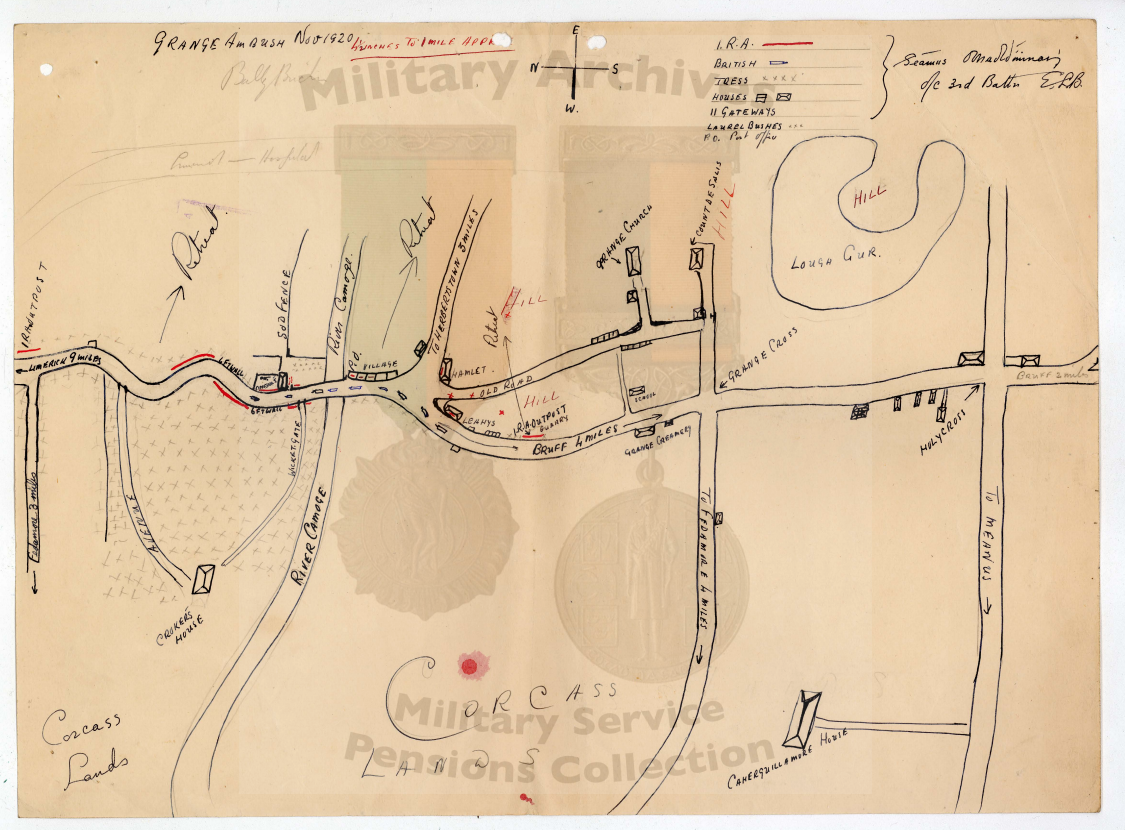 GRANGE AMBUSH NOV 1920
4 INCHES TO 1 MILE APPR
E
N
S
W.
I.R.A.
BRITISH
TRESS xxxx
HOUSES
11 GATEWAYS
LAUREL BUSHES
P.O. Post Office
Seamus
o/c 3rd Battn E.L.B.
Military Archives
Retreat
Retreat
Retreat
I.R.A OUTPOST
LIMERICK 9 MILES
SODFENCE
River Camoge.
TO HERBERTSTOWN 3 MILES
GRANGE CHURCH
COUNT DE SALIS
HILL
HILL
HILL
HILL
LOUGH GUR.
P.O.
VILLAGE
HAMLET
OLD ROAD
LEAHYS
I.R.A OUTPOST
QUARRY
SCHOOL
GRANGE CROSS
BRUFF 4 MILES
GRANGE CREAMERY
BRUFF 3 miles
HOLYCROSS
Fedamore 3 miles
AVENUE
WICKETGATE
RIVER CAMOGE
CROKER'S
HOUSE
TO FEDAMORE 4 MILES
TO MEANUS
CAHERGUILLAMORE HOUSE
CORCASS
LANDS
Corcass
Lands
Military Service
Pensions Collection